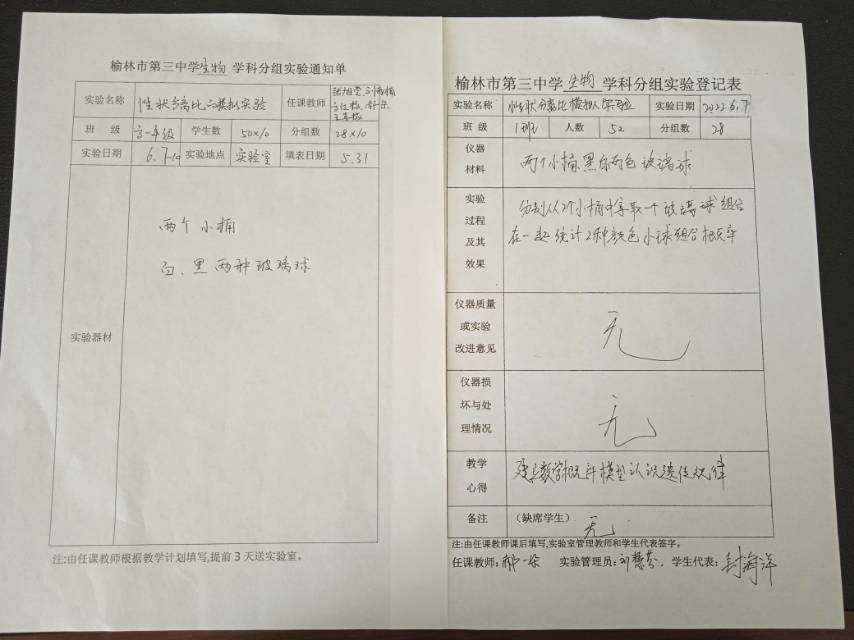 榆林市第三中学生物 学科分组实验通知单
实验名称 性状分离比的模拟实验 任课教师
班 级 高一年级 学生数 50×10 分组数 28×10
实验日期 6.7-10 实验地点 实验室 填表日期 5.31
实验器材
两个小桶
白、黑两种玻璃球
注:由任课教师根据教学计划填写,提前3天送实验室。
榆林市第三中学 生物 学科分组实验登记表
实验名称 性状分离比模拟实验 实验日期 2022.6.7
班 级 1班 人数 52 分组数 28
仪器
材料
两个小桶 黑白两色玻璃球
实验
过程
及其
效果
分别从2个小桶中拿取一个玻璃球组合
在一起 统计2种颜色小球组合概率
仪器质量
或实验
改进意见
无
仪器损
坏与处
理情况
无
教学
心得
建立数学概率模型认识遗传规律
备注 (缺席学生) 无
注:由任课教师课后填写,实验室管理教师和学生代表签字。
任课教师: 实验管理员:刘慧芬. 学生代表:封海洋